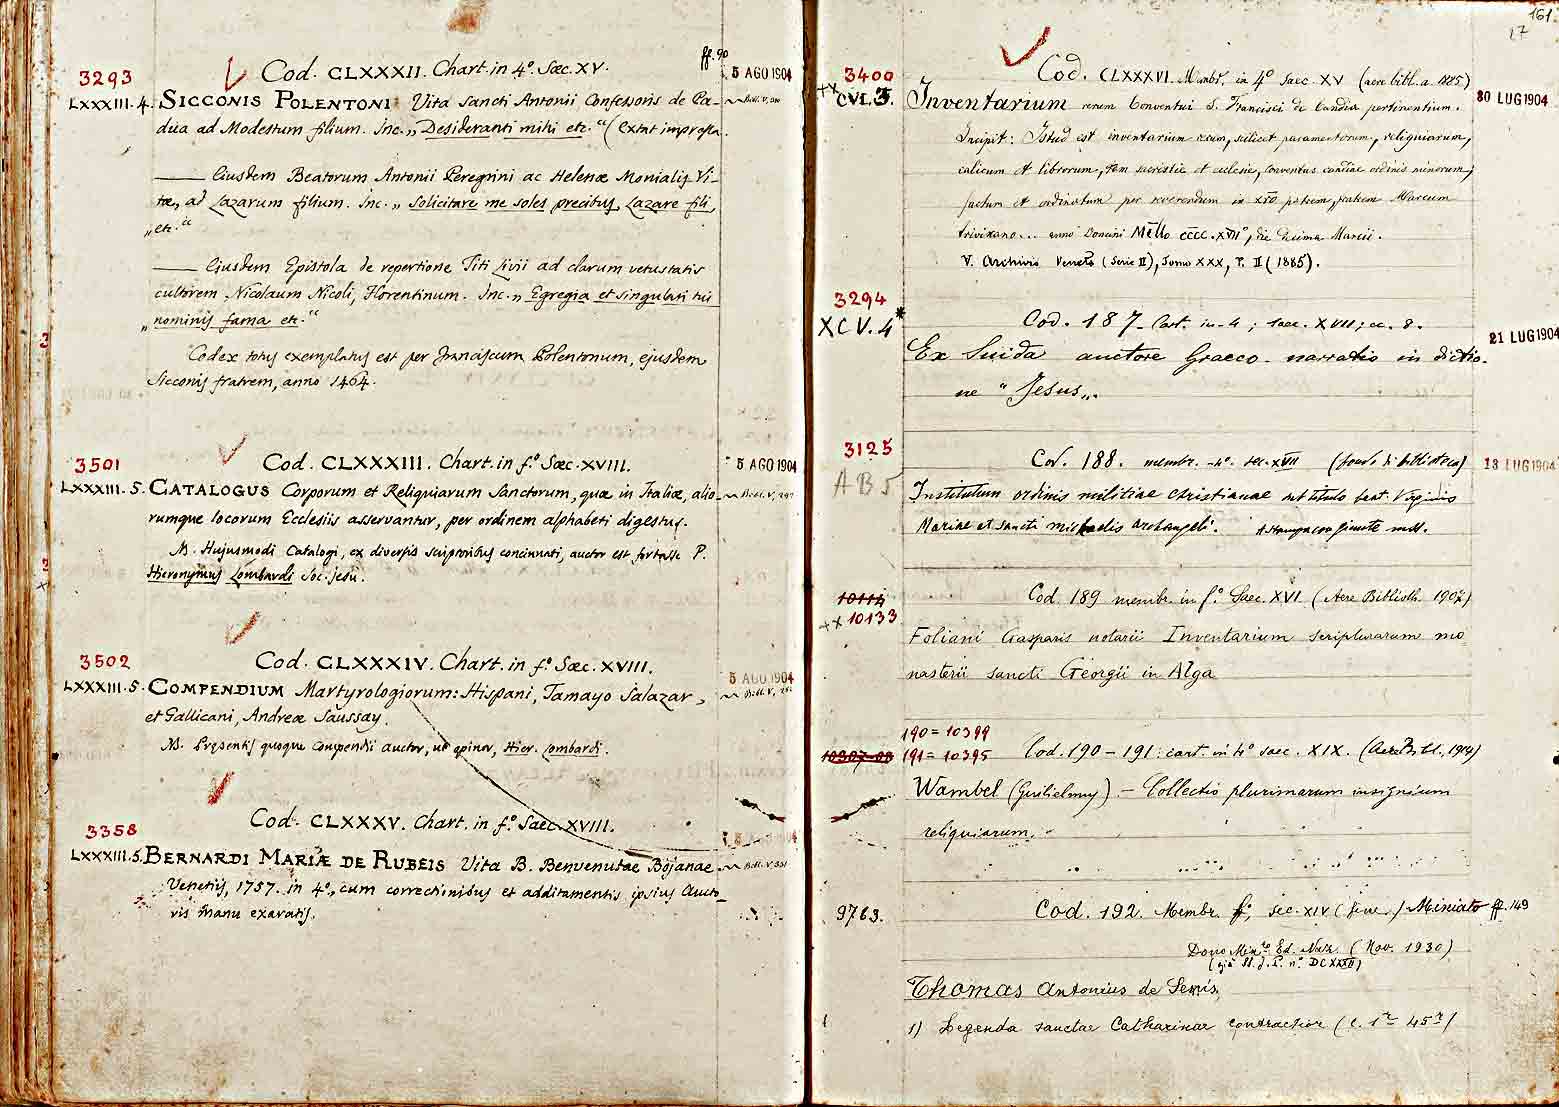 ff. 90
3293
Cod. CLXXXII. Chart. in 4° Sæc. XV.
5 AGO 1904
LXXXIII. 4. SICCONIS POLENTONI Vita Sancti Antonii Confessoris de Pa-
dua ad Modestum filium. Inc. „Desideranti mihi etc.“ (Extat impressa.
—— Eiusdem Beatorum Antonii Peregrini ac Helenæ Monialis Vi-
tæ, ad Lazarum filium. Inc. „Solicitare me soles precibus Lazare fili,
„etc.“
—— Eiusdem Epistola de repertione Titi Livii ad clarum vetustatis
cultorem Nicolaum Nicoli, Florentinum. Inc. „Egregia et singulari tui
„nominis fama etc.“
Codex totus exemplatus est per Franciscum Polentonum, ejusdem
Sicconis fratrem, anno 1464.
3501
Cod. CLXXXIII. Chart. in f.° Sæc. XVIII.
5 AGO 1904
LXXXIII. 5. CATALOGUS Corporum et Reliquiarum Sanctorum, quæ in Italiæ, alio-
rumque locorum Ecclesiis asservantur, per ordinem alphabeti digestus.
Hujusmodi Catalogi, ex diversis scriptoribus concinnati, auctor est fortasse P.
Hieronymus Lombardi Soc. Jesu.
3502
Cod. CLXXXIV. Chart. in f.° Sæc. XVIII.
5 AGO 1904
LXXXIII. 5. COMPENDIUM Martyrologiorum: Hispani, Tamayo Salazar,
et Gallicani, Andreæ Saussay.
Præsentis quoque Compendii auctor, ut opinor, Hier. Lombardi.
3358
Cod. CLXXXV. Chart. in f.° Saec. XVIII.
LXXXIII. 5. BERNARDI MARIÆ DE RUBEIS Vita B. Benvenutae Bojanae
Venetiis, 1757. in 4°, cum correctionibus et additamentis ipsius Aucto-
ris manu exaratis.
161.
17
3400
Cod. CLXXXVI. Membr. in 4° saec. XV (aere bibl. a. 1885)
30 LUG 1904
CVI. 3. Inventarium rerum Conventui S. Francisci de Candia pertinentium.
Incipit: Istud est inventarium rerum, scilicet paramentorum, reliquiarum,
calicum et librorum, tam sacristie et eclesie, conventus candiae ordinis minorum,
factum et ordinatum per reverendum in xto patrem, fratrem Marcum
trivixano... anno Domini Millo cccc. XVII°, die decima Marcii.
V. Archivio Veneto (Serie II), Tomo XXX, P. II (1885).
3294
XCV. 4*
Cod. 187. Cart. in-4; saec. XVII; cc. 8.
21 LUG 1904
Ex Suida auctore Graeco narratio in dictio-
ne “Jesus„.
3125
AB5
Cod. 188. membr. -4°. sec. XVII (fondo di biblioteca)
13 LUG 1904
Institutum ordinis militiae christianae sub titulo beat. Virginis
Mariae et sancti michaelis archangeli.
10114
10133
Cod. 189 membr. in f.° Saec. XVI (Aere Biblioth. 1907)
Foliani Gasparis notarii Inventarium scripturarum mo
nasterii sancti Georgii in Alga
190 = 10394
191 = 10395
Cod. 190 - 191: cart. in 4° saec. XIX. (Aere Bibl., 1914)
Wambel (Guilielmus) - Collectio plurimarum insignium
reliquiarum.
9763.
Cod. 192. Membr. f°, sec. XIV Miniato ff. 149
Dono Min.ro Ed. Naz. (Nov. 1930)
Thomas Antonius de Senis
1) Legenda sanctae Catharinae contractior (c. 1r - 45r)